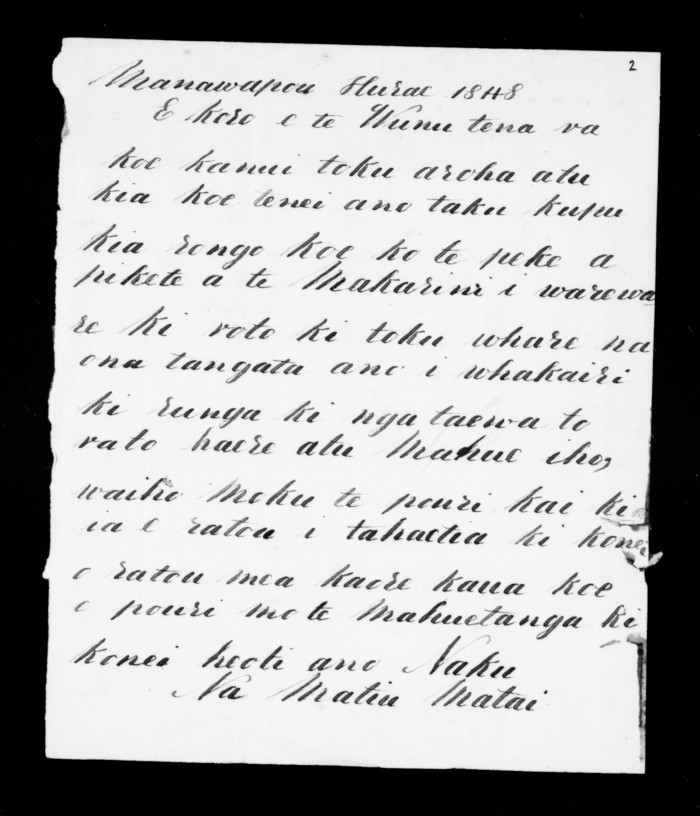 2
Manawapou Hurae 1848
E koro e te Wunu tena ra
koe kanui toku aroha atu
kia koe tenei ano taku kupu
kia rongo koe ko te peke a
pikete a te Makarini i warewa
re ki roto ki toku whare na
ona tangata ano i whakairi
ki runga ki nga taewa to
rato haere atu Mahue iho,
waiho Moku te pouri kai ki
ia e ratou i tahaetia ki konei
o ratou mea kaore kaua koe
e pouri mo te Mahuetanga ki
konei heoti ano Naku
Na Matiu Matai